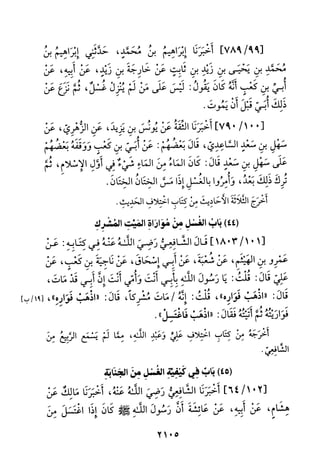 [٧٨٩/٩٩] أَخْبَرَنَا إِبْرَاهِيمُ بنُ مُحَمَّدٍ، حَدَّثَنِي إِبْرَاهِيمُ بنُ
مُحَمَّدِ بنِ يَحْيَى بنِ زَيْدِ بنِ ثَابِتٍ عَنْ خَارِجَةَ بنِ زَيْدٍ، عَنْ أَبِيهِ، عَنْ
أُبَيِّ بنِ كَعْبٍ أَنَّهُ كَانَ يَقُولُ: لَيْسَ عَلَى مَنْ لَمْ يُنْزِلْ غُسْلٌ، ثُمَّ نَزَعَ عَنْ
ذَلِكَ أُبَيٌّ قَبْلَ أَنْ يَمُوتَ.
[٧٩٠/١٠٠] أَخْبَرَنَا الثِّقَةُ عَنْ يُونُسَ بنِ يَزِيدَ، عَنِ الزُّهْرِيِّ، عَنْ
سَهْلِ بنِ سَعْدٍ السَّاعِدِيِّ، قَالَ بَعْضُهُمْ: عَنْ أُبَيِّ بنِ كَعْبٍ وَوَقَفَهُ بَعْضُهُمْ
عَلَى سَهْلِ بنِ سَعْدٍ قَالَ: كَانَ المَاءُ مِنَ المَاءِ شَيْءٌ فِي أَوَّلِ الإِسْلَامِ، ثُمَّ
تُرِكَ ذَلِكَ بَعْدُ، وَأُمِرُوا بِالغُسْلِ إِذَا مَسَّ الخِتَانُ الخِتَانَ.
أَخْرَجَ الثَّلَاثَةَ الأَحَادِيثَ مِنْ كِتَابِ اخْتِلَافِ الحَدِيثِ.
(٤٤) بَابُ الغُسْلِ مِنْ مُوَارَاةِ المَيِّتِ المُشْرِكِ
[١٨٠٣/١٠١] قَالَ الشَّافِعِيُّ رَضِيَ اللَّهُ عَنْهُ فِي كِتَابِهِ: عَنْ
عَمْرِو بنِ الهَيْثَمِ، عَنْ شُعْبَةَ، عَنْ أَبِي إِسْحَاقَ، عَنْ نَاجِيَةَ بنِ كَعْبٍ، عَنْ
عَلِيٍّ قَالَ: قُلْتُ: يَا رَسُولَ اللَّهِ بِأَبِي أَنْتَ وَأُمِّي أَنْتَ إِنَّ أَبِي قَدْ مَاتَ،
قَالَ: «اذْهَبْ فَوَارِهِ»، قُلْتُ: إِنَّهُ / مَاتَ مُشْرِكاً، قَالَ: «اذْهَبْ فَوَارِهِ»، [١٩/ب]
فَوَارَيْتُهُ ثُمَّ أَتَيْتُهُ فَقَالَ: «اذْهَبْ فَاغْتَسِلْ».
أَخْرَجَهُ مِنْ كِتَابِ اخْتِلَافِ عَلِيٍّ وَعَبْدِ اللَّهِ، مِمَّا لَمْ يَسْمَعِ الرَّبِيعُ مِنَ
الشَّافِعِيِّ.
(٤٥) بَابٌ فِي كَيْفِيَّةِ الغُسْلِ مِنَ الجَنَابَةِ
[٦٤/١٠٢] أَخْبَرَنَا الشَّافِعِيُّ رَضِيَ اللَّهُ عَنْهُ، أَخْبَرَنَا مَالِكٌ عَنْ
هِشَامٍ، عَنْ أَبِيهِ، عَنْ عَائِشَةَ أَنَّ رَسُولَ اللَّهِ ﷺ كَانَ إِذَا اغْتَسَلَ مِنَ
٢١٠٥